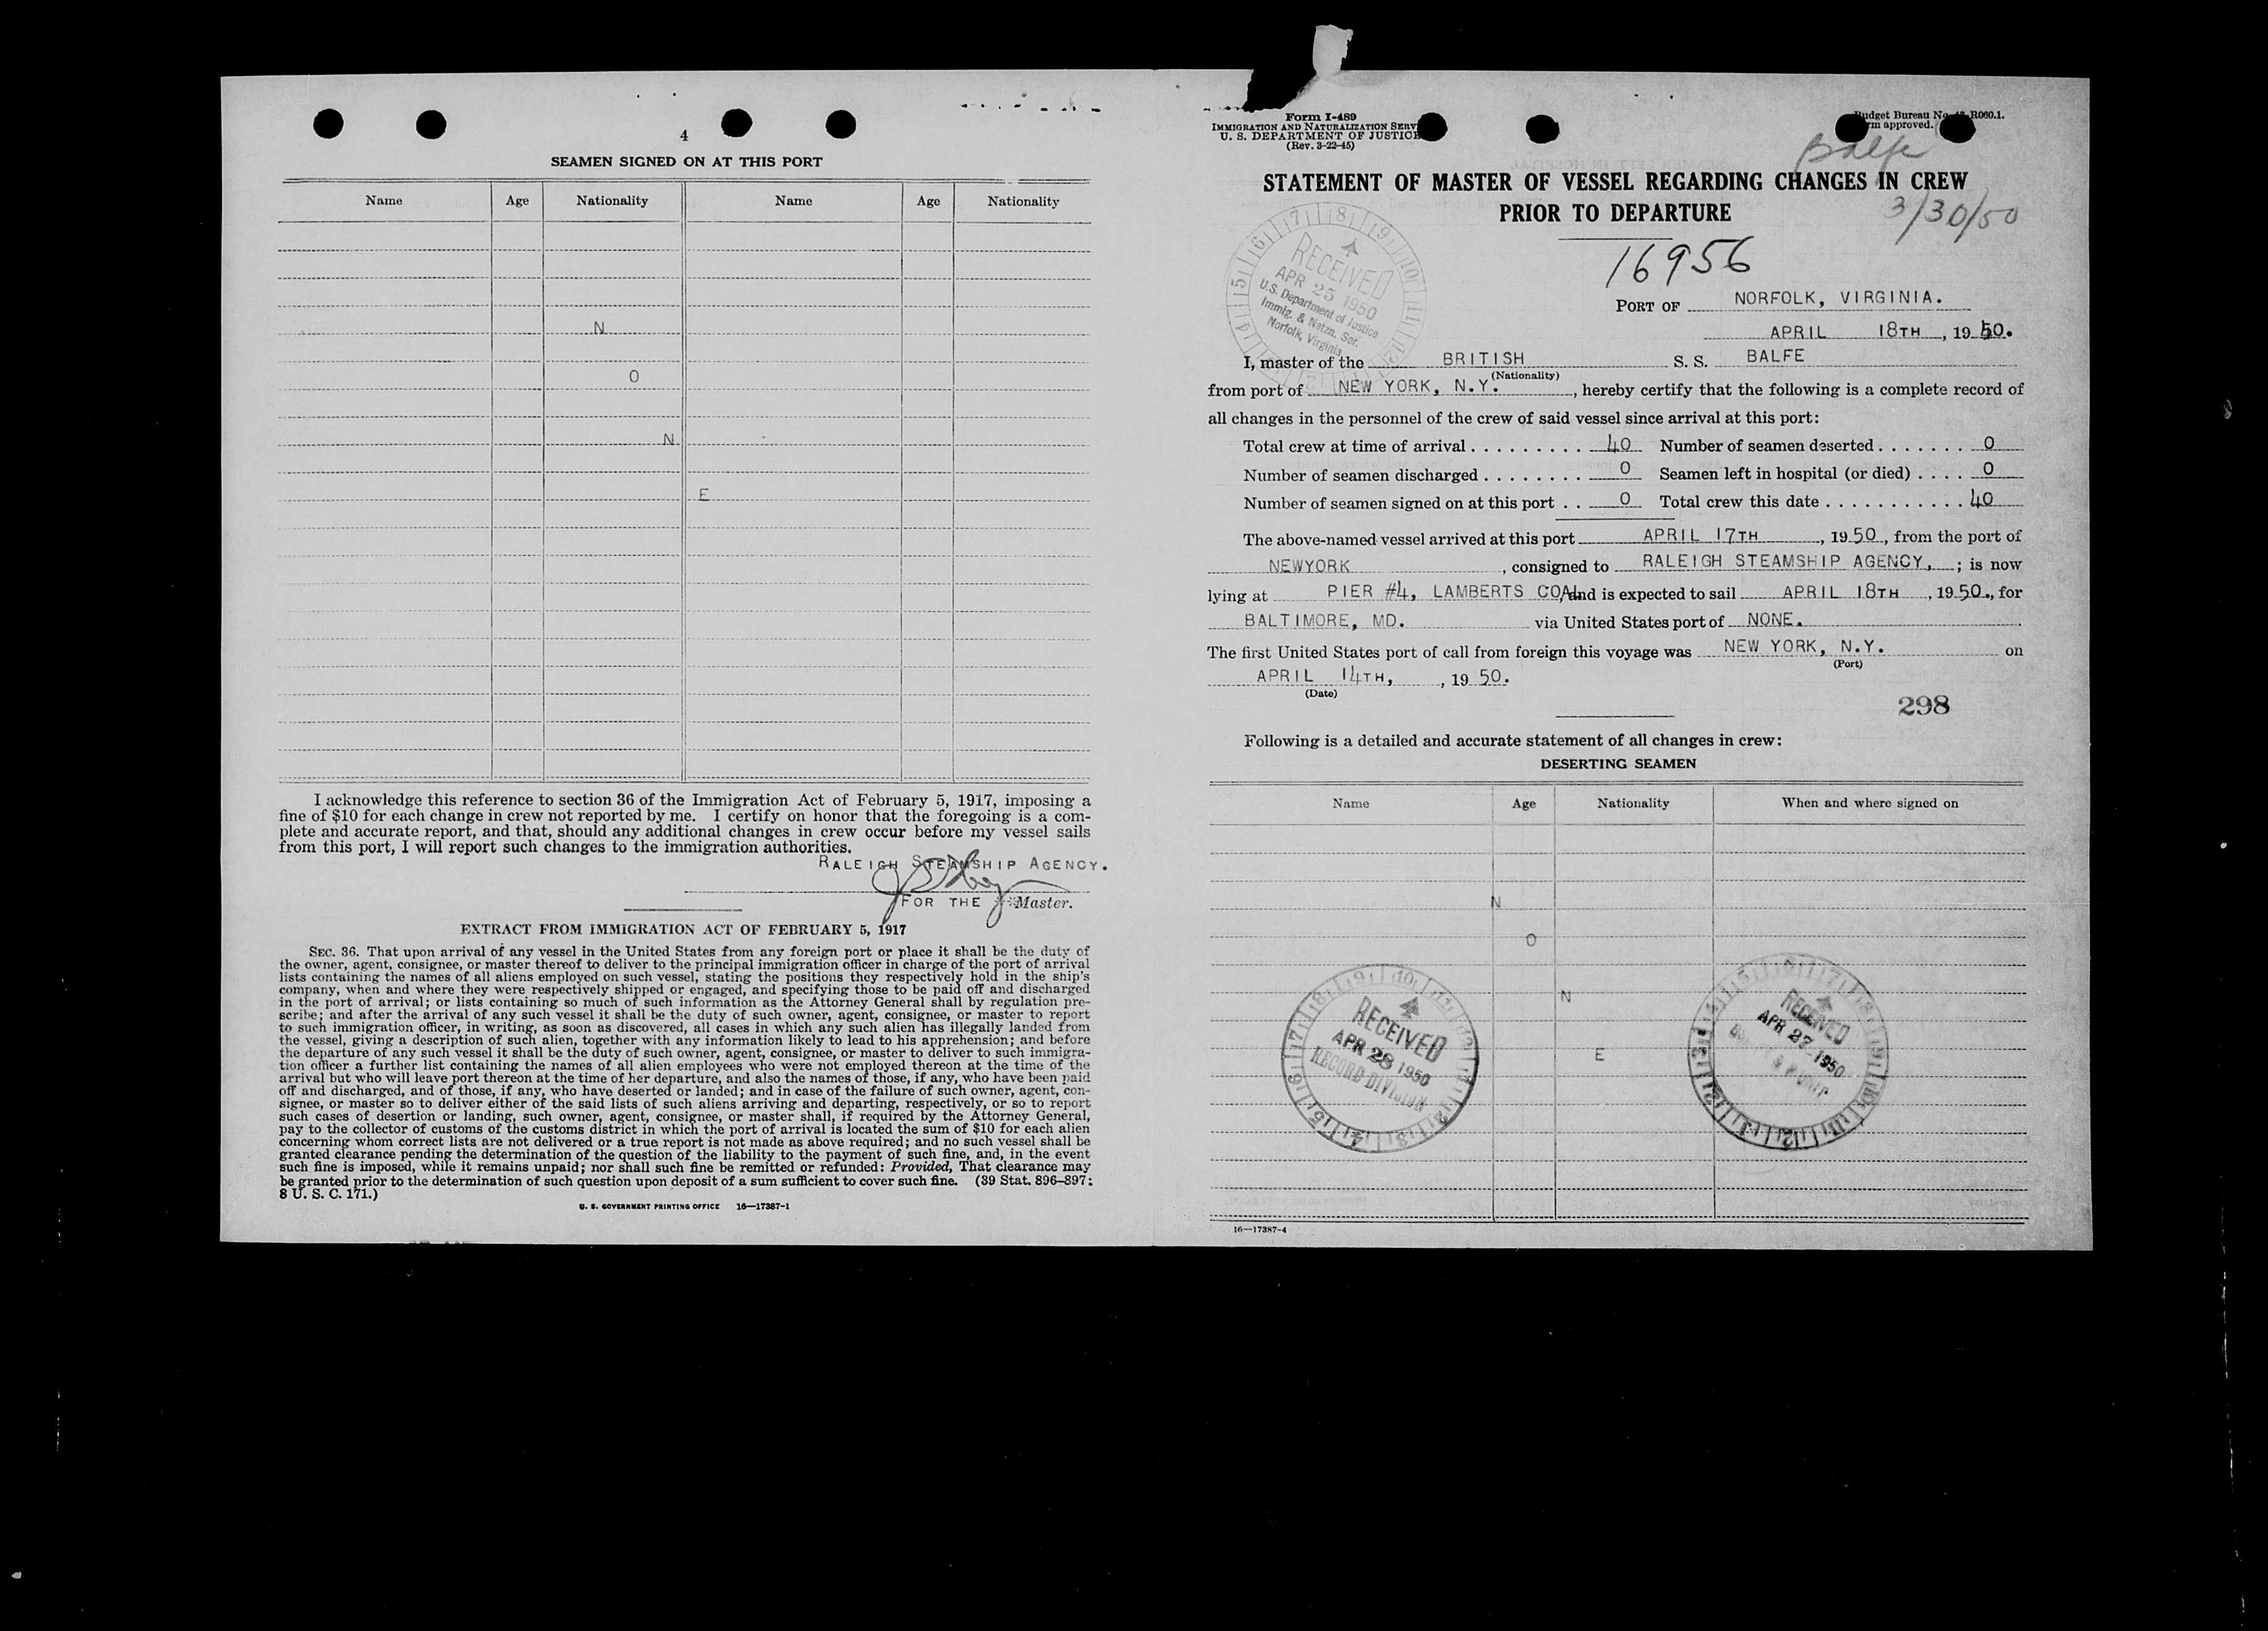 4
SEAMEN SIGNED ON AT THIS PORT
Name Age Nationality Name Age Nationality
N
O
N
E
I acknowledge this reference to section 36 of the Immigration Act of February 5, 1917, imposing a
fine of $10 for each change in crew not reported by me. I certify on honor that the foregoing is a com-
plete and accurate report, and that, should any additional changes in crew occur before my vessel sails
from this port, I will report such changes to the immigration authorities.
RALEIGH STEAMSHIP AGENCY.
FOR THE Master.
EXTRACT FROM IMMIGRATION ACT OF FEBRUARY 5, 1917
SEC. 36. That upon arrival of any vessel in the United States from any foreign port or place it shall be the duty of
the owner, agent, consignee, or master thereof to deliver to the principal immigration officer in charge of the port of arrival
lists containing the names of all aliens employed on such vessel, stating the positions they respectively hold in the ship's
company, when and where they were respectively shipped or engaged, and specifying those to be paid off and discharged
in the port of arrival; or lists containing so much of such information as the Attorney General shall by regulation pre-
scribe; and after the arrival of any such vessel it shall be the duty of such owner, agent, consignee, or master to report
to such immigration officer, in writing, as soon as discovered, all cases in which any such alien has illegally landed from
the vessel, giving a description of such alien, together with any information likely to lead to his apprehension; and before
the departure of any such vessel it shall be the duty of such owner, agent, consignee, or master to deliver to such immigra-
tion officer a further list containing the names of all alien employees who were not employed thereon at the time of the
arrival but who will leave port thereon at the time of her departure, and also the names of those, if any, who have been paid
off and discharged, and of those, if any, who have deserted or landed; and in case of the failure of such owner, agent, con-
signee, or master so to deliver either of the said lists of such aliens arriving and departing, respectively, or so to report
such cases of desertion or landing, such owner, agent, consignee, or master shall, if required by the Attorney General,
pay to the collector of customs of the customs district in which the port of arrival is located the sum of $10 for each alien
concerning whom correct lists are not delivered or a true report is not made as above required; and no such vessel shall be
granted clearance pending the determination of the question of the liability to the payment of such fine, and, in the event
such fine is imposed, while it remains unpaid; nor shall such fine be remitted or refunded: Provided, That clearance may
be granted prior to the determination of such question upon deposit of a sum sufficient to cover such fine. (39 Stat. 896-897;
8 U. S. C. 171.)
U. S. GOVERNMENT PRINTING OFFICE 16—17387-1
Form I-489
IMMIGRATION AND NATURALIZATION SERV
U. S. DEPARTMENT OF JUSTICE
(Rev. 3-22-45)
udget Bureau No. R060.1.
rm approved.
Balfe
STATEMENT OF MASTER OF VESSEL REGARDING CHANGES IN CREW
PRIOR TO DEPARTURE
3/30/50
16956
RECEIVED
APR 25 1950
U.S. Department of Justice
Immig. & Natzn. Ser.
Norfolk, Virginia
PORT OF NORFOLK, VIRGINIA.
APRIL 18TH, 1950.
I, master of the BRITISH S. S. BALFE
(Nationality)
from port of NEW YORK, N.Y., hereby certify that the following is a complete record of
all changes in the personnel of the crew of said vessel since arrival at this port:
Total crew at time of arrival . . . . . . . . . 40 Number of seamen deserted . . . . . . . 0
Number of seamen discharged . . . . . . . . 0 Seamen left in hospital (or died) . . . . 0
Number of seamen signed on at this port . . 0 Total crew this date . . . . . . . . . . . 40
The above-named vessel arrived at this port APRIL 17TH, 1950, from the port of
NEWYORK, consigned to RALEIGH STEAMSHIP AGENCY,; is now
lying at PIER #4, LAMBERTS COAL and is expected to sail APRIL 18TH, 1950., for
BALTIMORE, MD. via United States port of NONE.
The first United States port of call from foreign this voyage was NEW YORK, N.Y. on
(Port)
APRIL 14TH, , 19 50.
(Date)
298
Following is a detailed and accurate statement of all changes in crew:
DESERTING SEAMEN
Name Age Nationality When and where signed on
N
O
N
E
RECEIVED
APR 28 1950
RECORD DIVISION
RECEIVED
APR 27 1950
16—17387-4